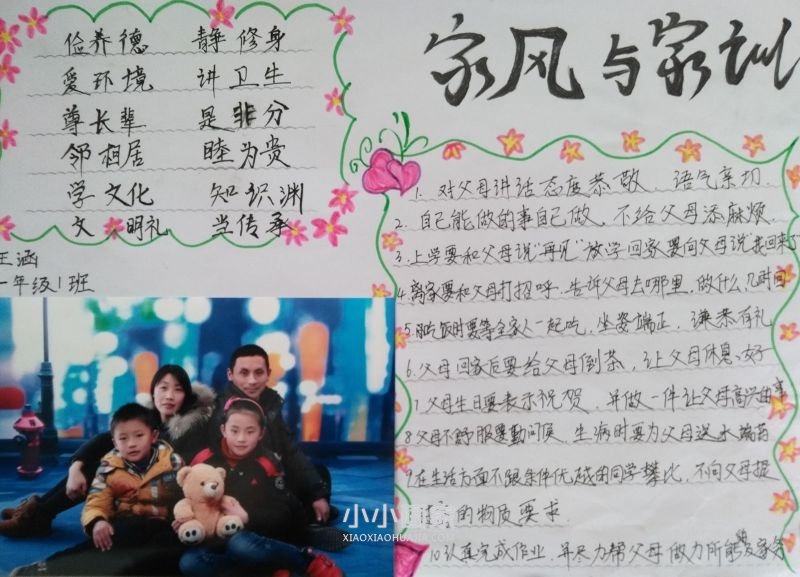 家风与家训
俭养德 静修身
爱环境 讲卫生
尊长辈 是非分
邻相居 睦为贵
学文化 知识渊
文明礼 当传承
王涵
一年级1班
1. 对父母讲话态度恭敬、语气亲切.
2. 自己能做的事自己做,不给父母添麻烦.
3. 上学要和父母说"再见"放学回家要向父母说"我回来了
4. 离家要和父母打招呼.告诉父母去哪里,做什么,几时回
5 吃饭时要等全家人一起吃,坐姿端正,谦恭有礼
6. 父母回家后要给父母倒茶,让父母休息好
7 父母生日要表示祝贺,并做一件让父母高兴的事
8 父母不舒服要勤问候,生病时要为父母送水端药
9 在生活方面不跟条件优越的同学攀比,不向父母提
的物质要求.
10 认真完成作业,并尽力帮父母做力所能及家务
小小画家
XIAOXIAOHUAJIA.COM